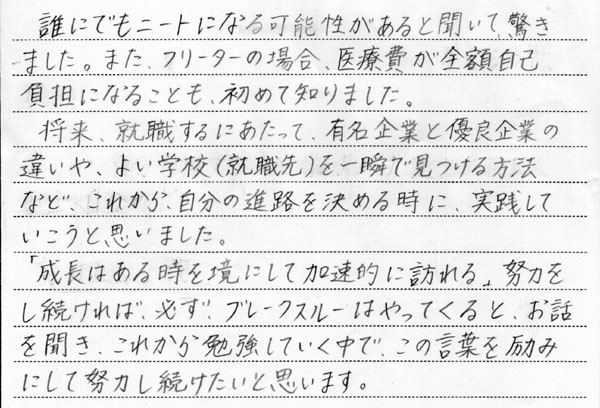 誰にでもニートになる可能性があると聞いて、驚き
ました。また、フリーターの場合、医療費が全額自己
負担になることも、初めて知りました。
将来、就職するにあたって、有名企業と優良企業の
違いや、よい学校(就職先)を一瞬で見つける方法
など、これから、自分の進路を決める時に、実践して
いこうと思いました。
「成長はある時を境にして加速的に訪れる」努力を
し続ければ、必ず、ブレークスルーはやってくると、お話
を聞き、これから勉強していく中で、この言葉を励み
にして努力し続けたいと思います。